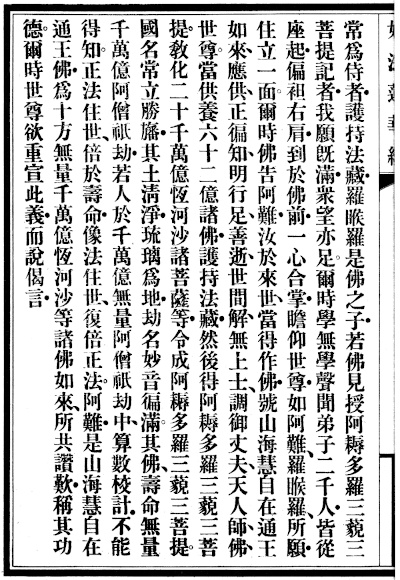 妙法蓮華經
常爲侍者護持法藏羅睺羅是佛之子若佛見授阿耨多羅三藐三
菩提記者我願旣滿衆望亦足爾時學無學聲聞弟子二千人皆從
座起偏袒右肩到於佛前一心合掌瞻仰世尊如阿難羅睺羅所願
住立一面爾時佛告阿難汝於來世當得作佛號山海慧自在通王
如來應供正徧知明行足善逝世間解無上士調御丈夫天人師佛
世尊當供養六十二億諸佛護持法藏然後得阿耨多羅三藐三菩
提敎化二十千萬億恆河沙諸菩薩等令成阿耨多羅三藐三菩提
國名常立勝旛其土淸淨琉璃爲地劫名妙音徧滿其佛壽命無量
千萬億阿僧祇劫若人於千萬億無量阿僧祇劫中算數校計不能
得知正法住世倍於壽命像法住世復倍正法阿難是山海慧自在
通王佛爲十方無量千萬億恆河沙等諸佛如來所共讚歎稱其功
德爾時世尊欲重宣此義而說偈言